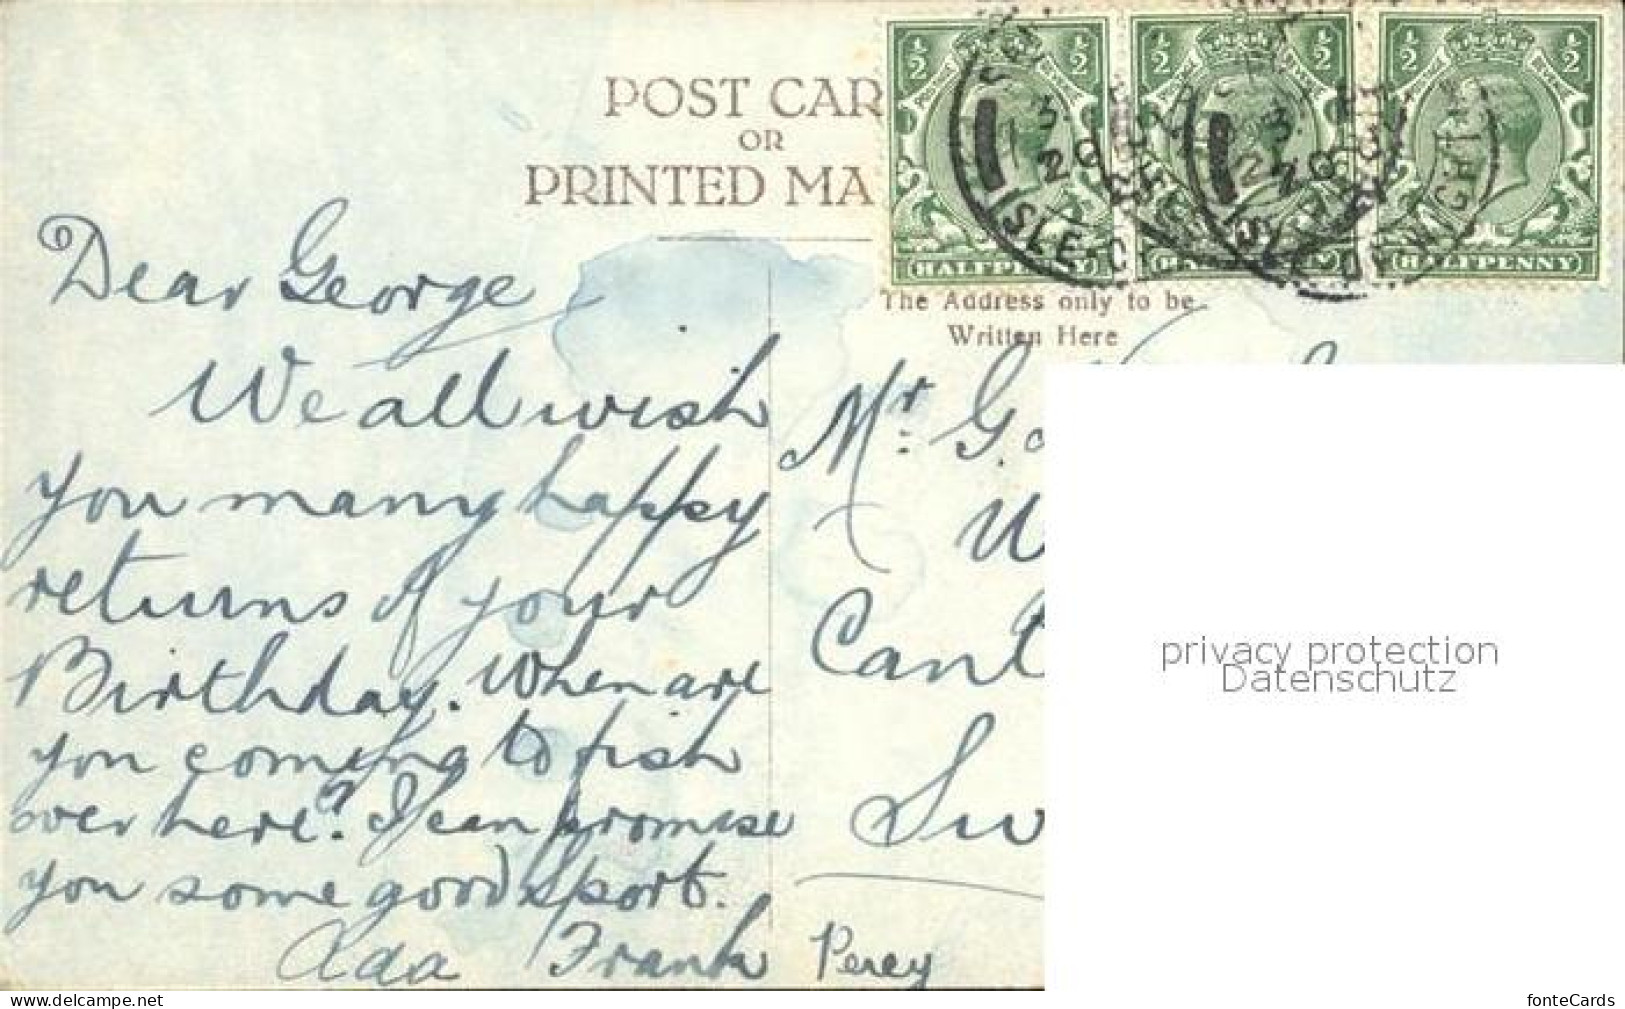 POST CAR
OR
PRINTED MA
½ ½ ½ ½ ½ ½
HALFPENNY HALFPENNY HALFPENNY
ISLE O
The Address only to be
Written Here
Dear George
We all wish
you many happy
returns of your
Birthday. When are
you coming to fish
over here? I can promise
you some good sport.
Ada Frank Percy
Mr G.
W
Cant
Sw
privacy protection
Datenschutz
www.delcampe.net
fonteCards